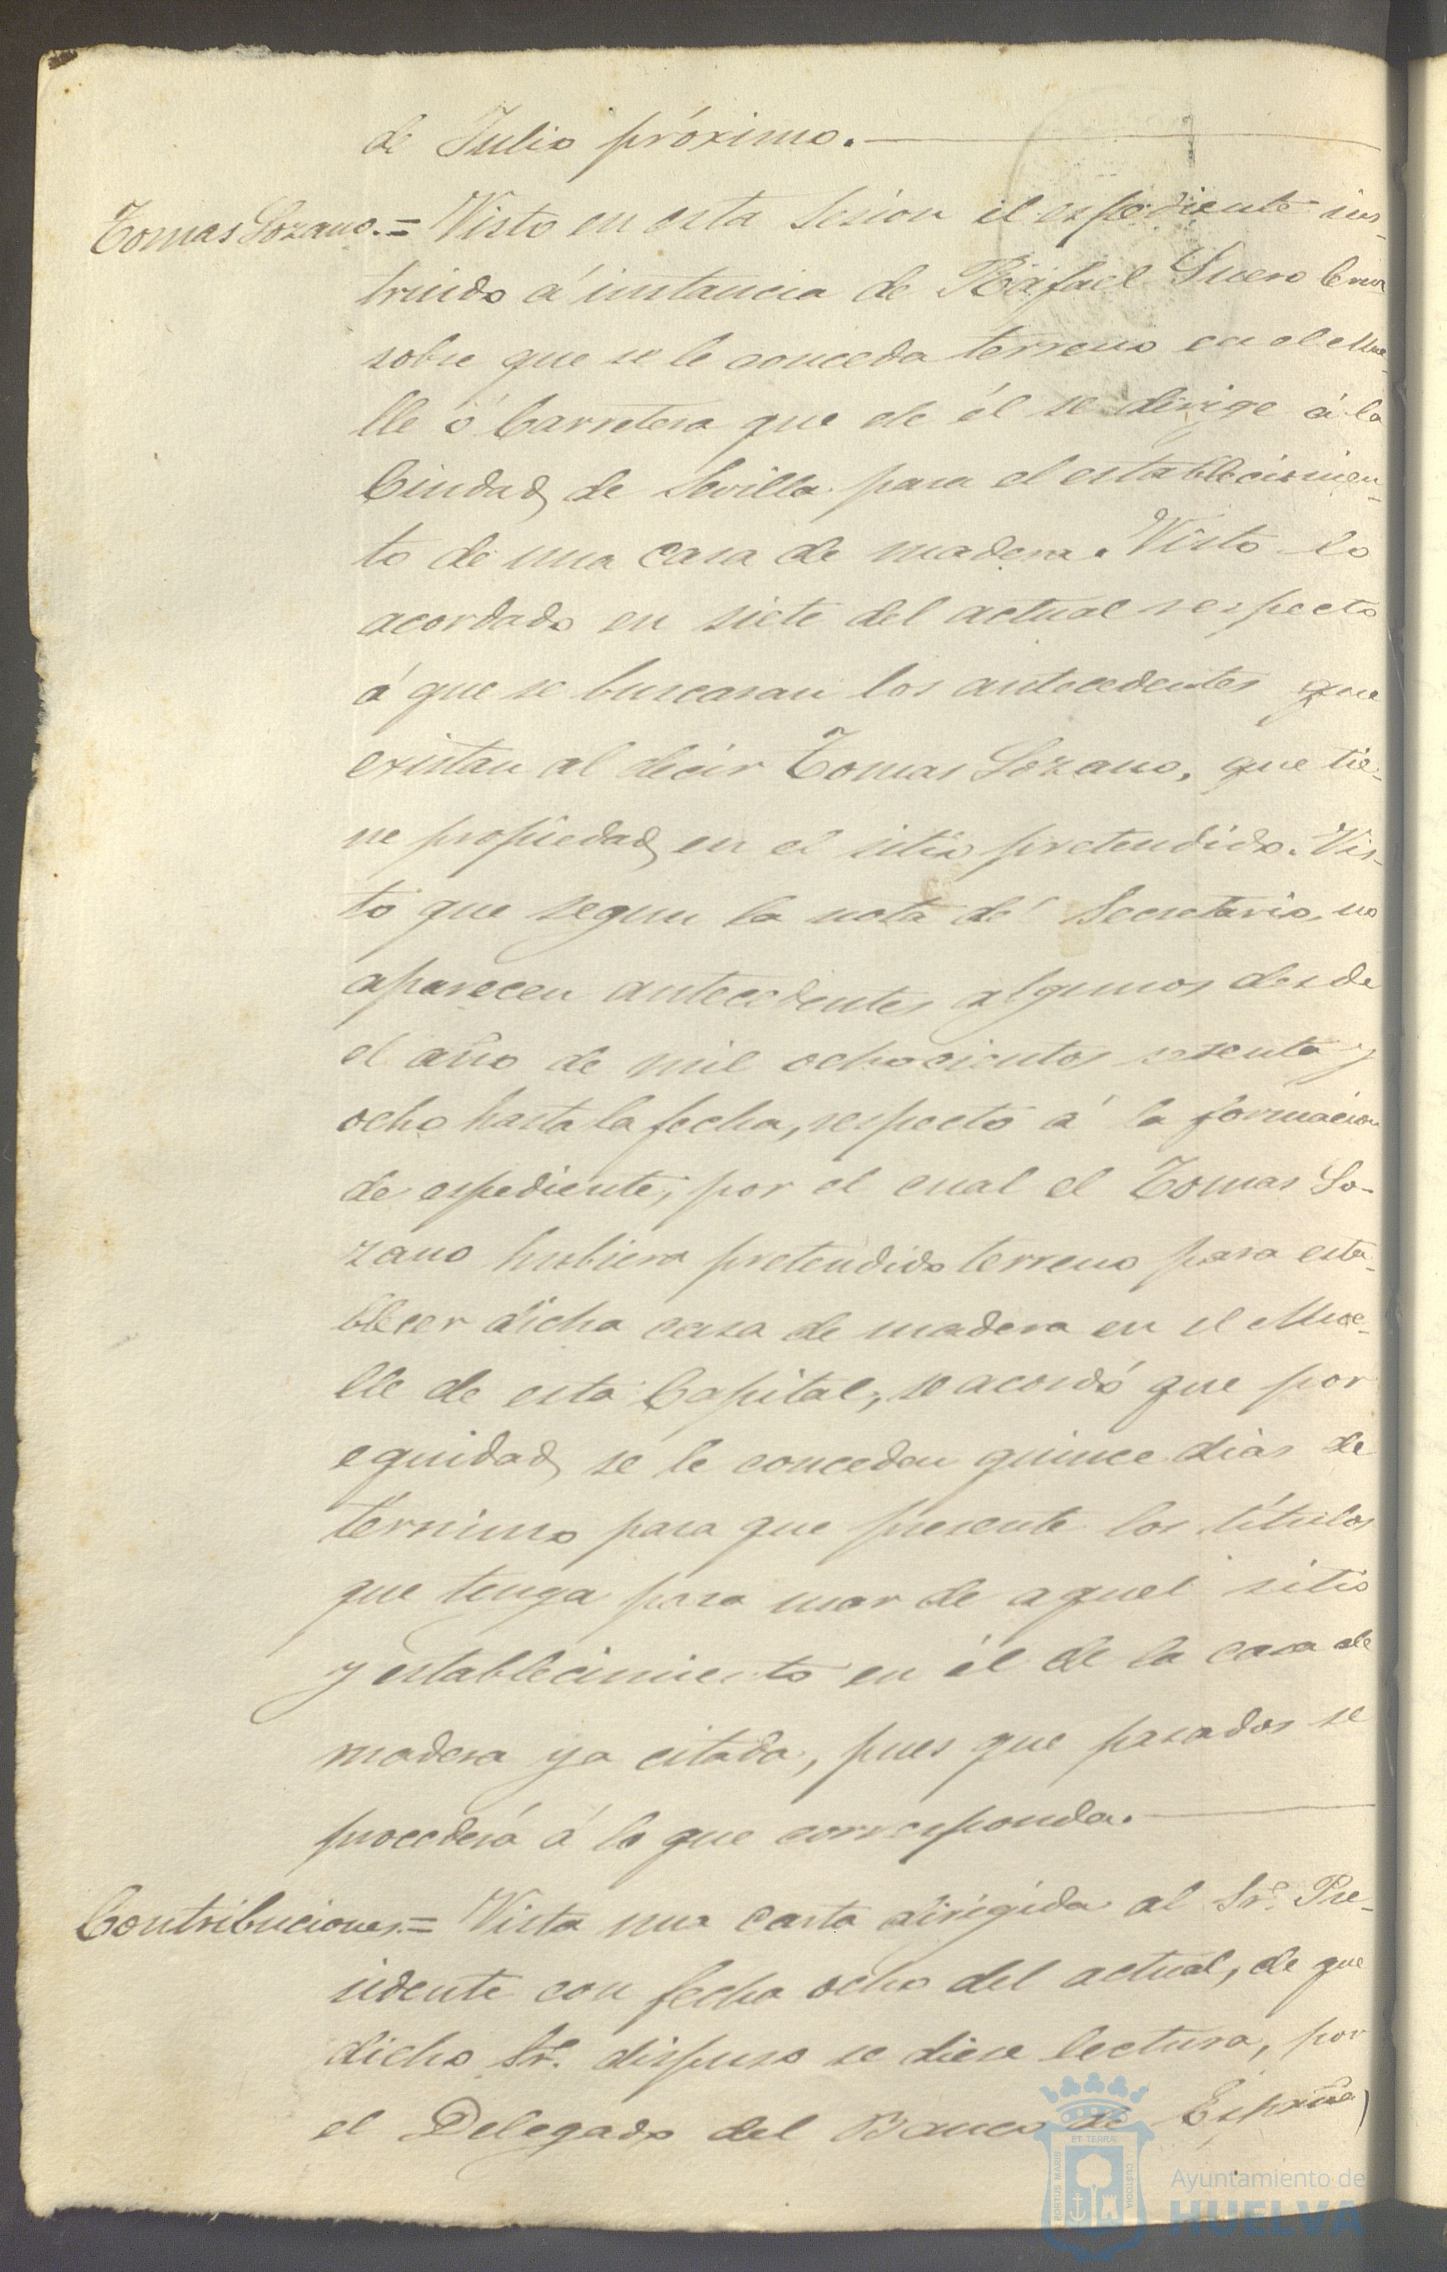 de Julio próximo.
Tomas Lozano.= Visto en esta sesion el espediente ins-
truido á instancia de Rafael Suero
sobre que se le conceda terreno en el Mue-
lle ó Carretera que de él se dirige á la
Ciudad de Sevilla para el establecimien-
to de una casa de madera. Visto lo
acordado en siete del actual respecto
á que se buscasan los antecedentes que
existan al decir Tomas Lozano, que tie-
ne propiedad en el sitio pretendido. Vis-
to que segun la nota de Secretario, no
aparecen antecedentes algunos desde
el año de mil ochocientos sesenta y
ocho hasta la fecha, respecto á la formacion
de espediente, por el cual el Tomas Lo-
zano hubiera pretendido terreno para esta-
blecer dicha casa de madera en el Mue-
lle de esta Capital, se acordó que por
equidad se le conceden quince dias de
término para que presente los títulos
que tenga para usar de aquel sitio
y establecimiento en él de la casa de
madera ya citada, pues que pasados se
procederá á lo que corresponda.
Contribuciones.= Vista una carta dirigida al Sr. Pre-
sidente con fecha ocho del actual, de que
dicho Sr. dispuso se diese lectura, por
el Delegado del Banco de España,
PORTUS MARIS
ET TERRA
CUSTODIA
Ayuntamiento de
HUELVA